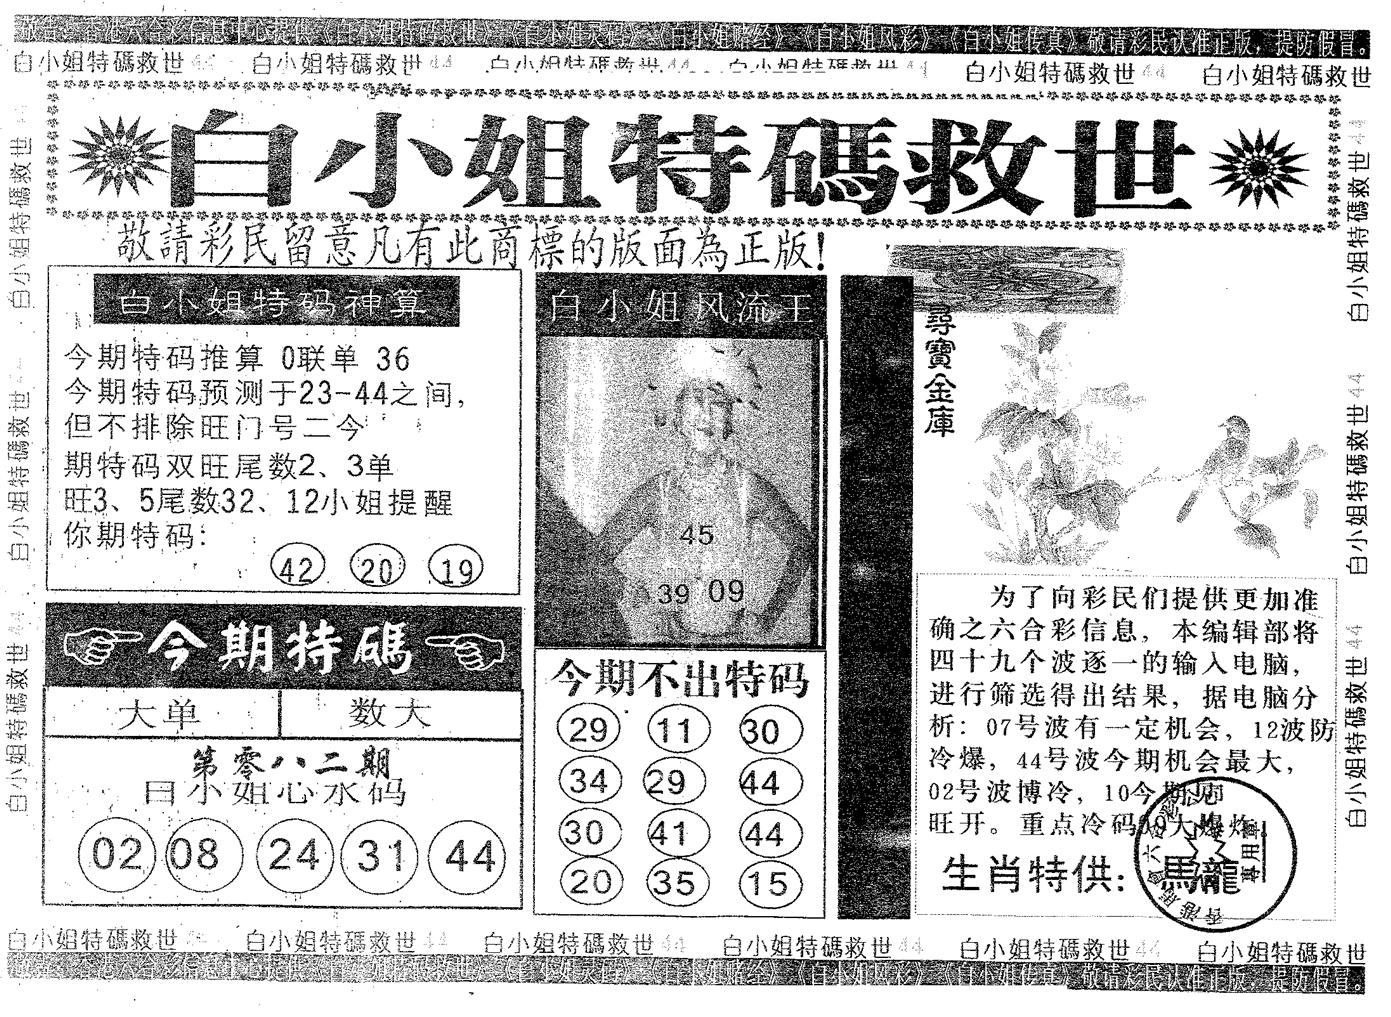 敬告：香港六合彩信息中心提供《白小姐特码救世》《白小姐灵码》《白小姐赌经》《白小姐风彩》《白小姐传真》敬请彩民认准正版，提防假冒。
白小姐特碼救世44 白小姐特碼救世44 白小姐特碼救世44 白小姐特碼救世44 白小姐特碼救世44 白小姐特碼救世
白小姐特碼救世
敬請彩民留意凡有此商標的版面為正版!
白小姐特码神算
今期特码推算 0联单 36
今期特码预测于23-44之间，
但不排除旺门号二今
期特码双旺尾数2、3单
旺3、5尾数32、12小姐提醒
你期特码：
42 20 19
今期特碼
大单 数大
第零八二期
白小姐心水码
02 08 24 31 44
白小姐风流王
45
39 09
今期不出特码
29 11 30
34 29 44
30 41 44
20 35 15
尋寶金庫
为了向彩民们提供更加准
确之六合彩信息，本编辑部将
四十九个波逐一的输入电脑，
进行筛选得出结果，据电脑分
析：07号波有一定机会，12波防
冷爆，44号波今期机会最大，
02号波博冷，10今期见
旺开。重点冷码09大爆炸
生肖特供：馬龍
專用章
白小姐特碼救世44
白小姐特碼救世44
白小姐特碼救世44
白小姐特碼救世44
白小姐特碼救世44
白小姐特碼救世44
白小姐特碼救世44 白小姐特碼救世44 白小姐特碼救世44 白小姐特碼救世44 白小姐特碼救世44 白小姐特碼救世
敬告：香港六合彩信息中心提供《白小姐特码救世》《白小姐灵码》《白小姐赌经》《白小姐风彩》《白小姐传真》敬请彩民认准正版，提防假冒。